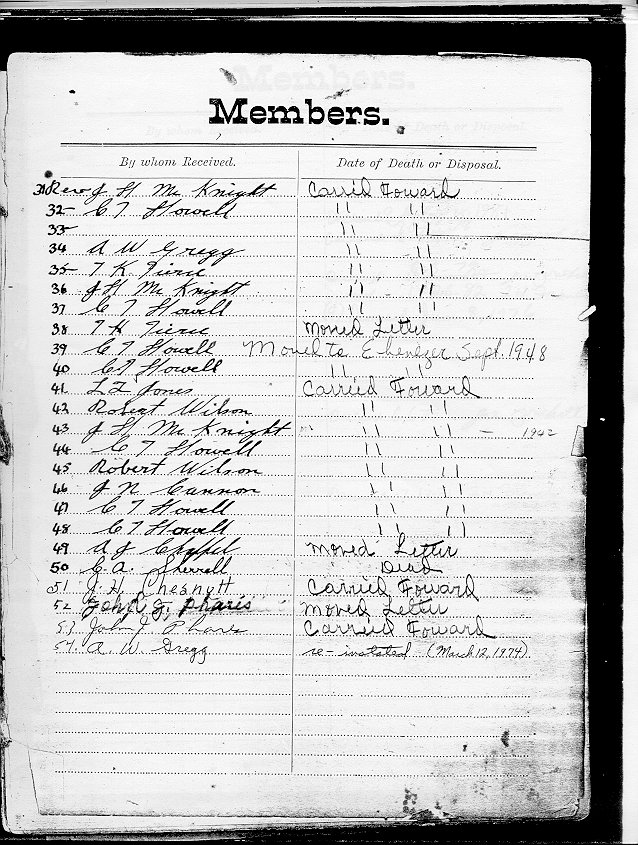 Members.
By whom Received. Date of Death or Disposal.
31 Rev J H Mc Knight Carried Foward
32 C T Howell " "
33 " "
34 A W Gregg " "
35 T K Tierce " "
36 J H Mc Knight " "
37 C T Howell " "
38 T H Tierce Moved Letter
39 C T Howell Moved to Ebenezer Sept. 1948
40 C T Howell " "
41 L T Jones Carried Foward
42 Robert Wilson " "
43 J H Mc Knight " " " — 1942
44 C T Howell " "
45 Robert Wilson " "
46 J N Cannon " "
47 C T Howell " "
48 C T Howell " "
49 A J Moved Letter
50 C A. Sherrell Dead
51 J. H. Chesnytt Carried Foward
52 John J. Pharis Moved Letter
53 John J Pharis Carried Foward
54. A. W. Gregg re-instated (March 12, 1974)